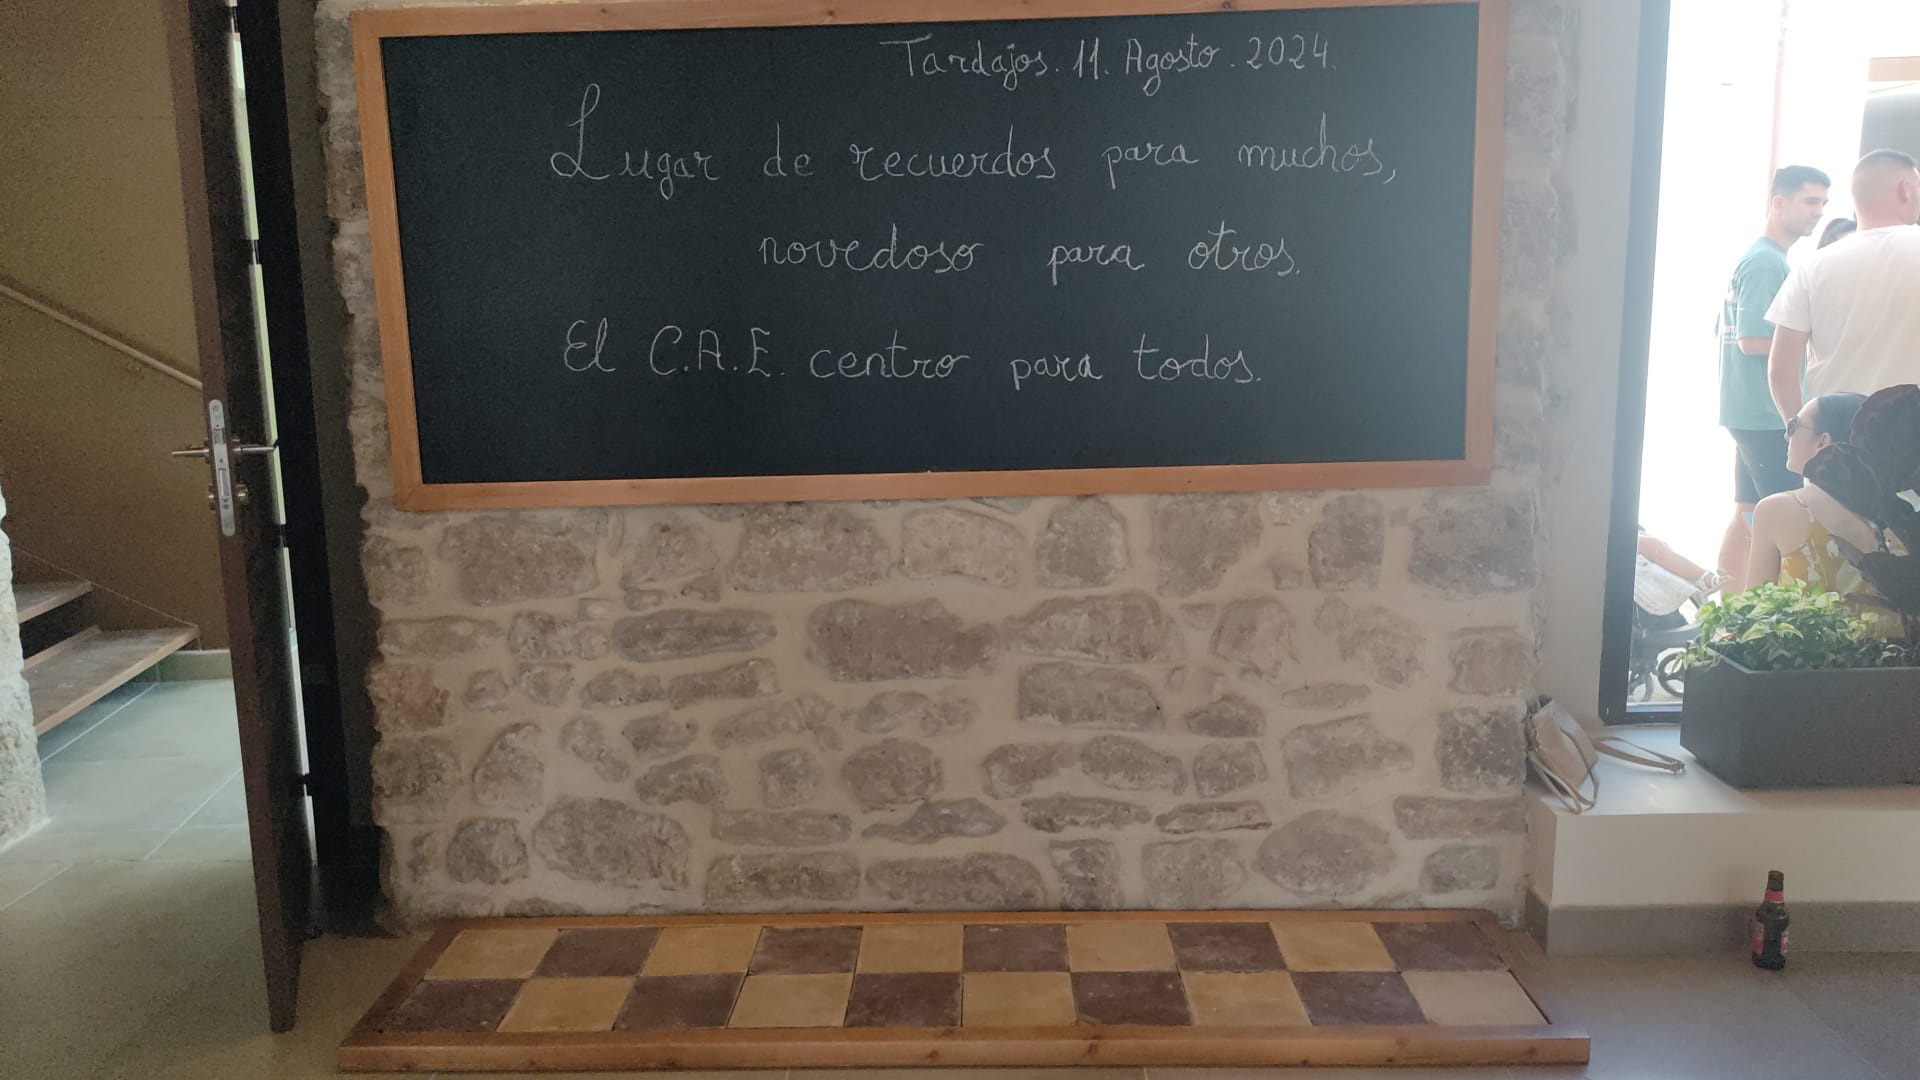 Tardajos. 11. Agosto. 2024.
Lugar de recuerdos para muchos,
novedoso para otros.
El C.A.E. centro para todos.